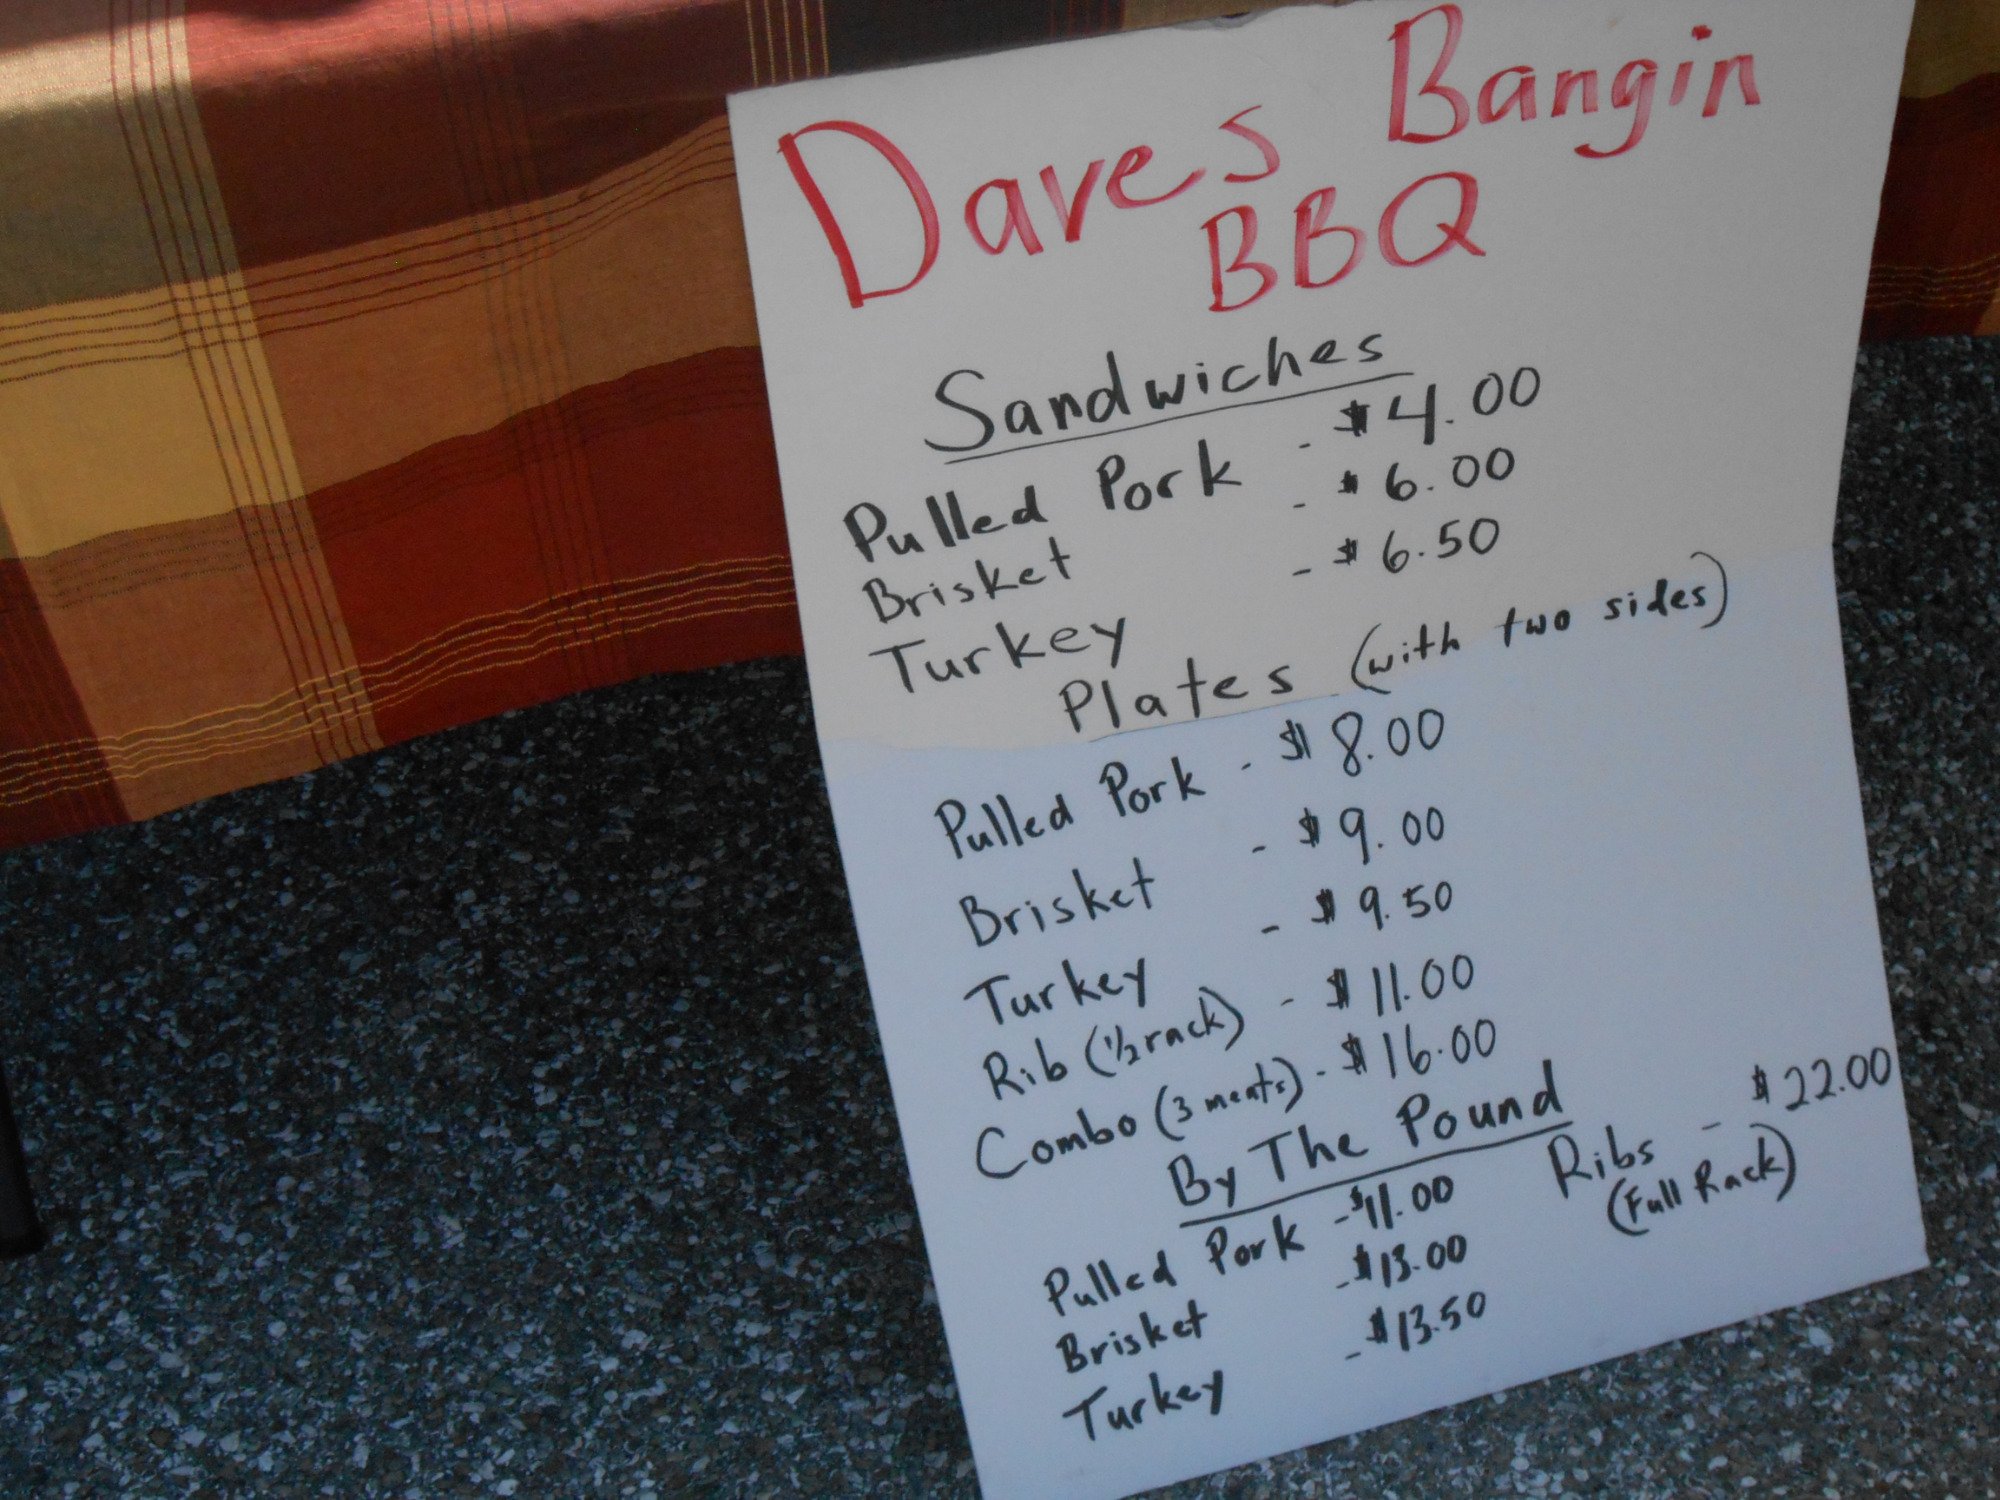 Daves Bangin
BBQ
Sandwiches
Pulled Pork - $4.00
Brisket - $6.00
Turkey - $6.50
Plates (with two sides)
Pulled Pork - $8.00
Brisket - $9.00
Turkey - $9.50
Rib (1/2 rack) - $11.00
Combo (3 meats) - $16.00
By The Pound
Pulled Pork - $11.00
Brisket - $13.00
Turkey - $13.50
Ribs - $22.00
(Full Rack)